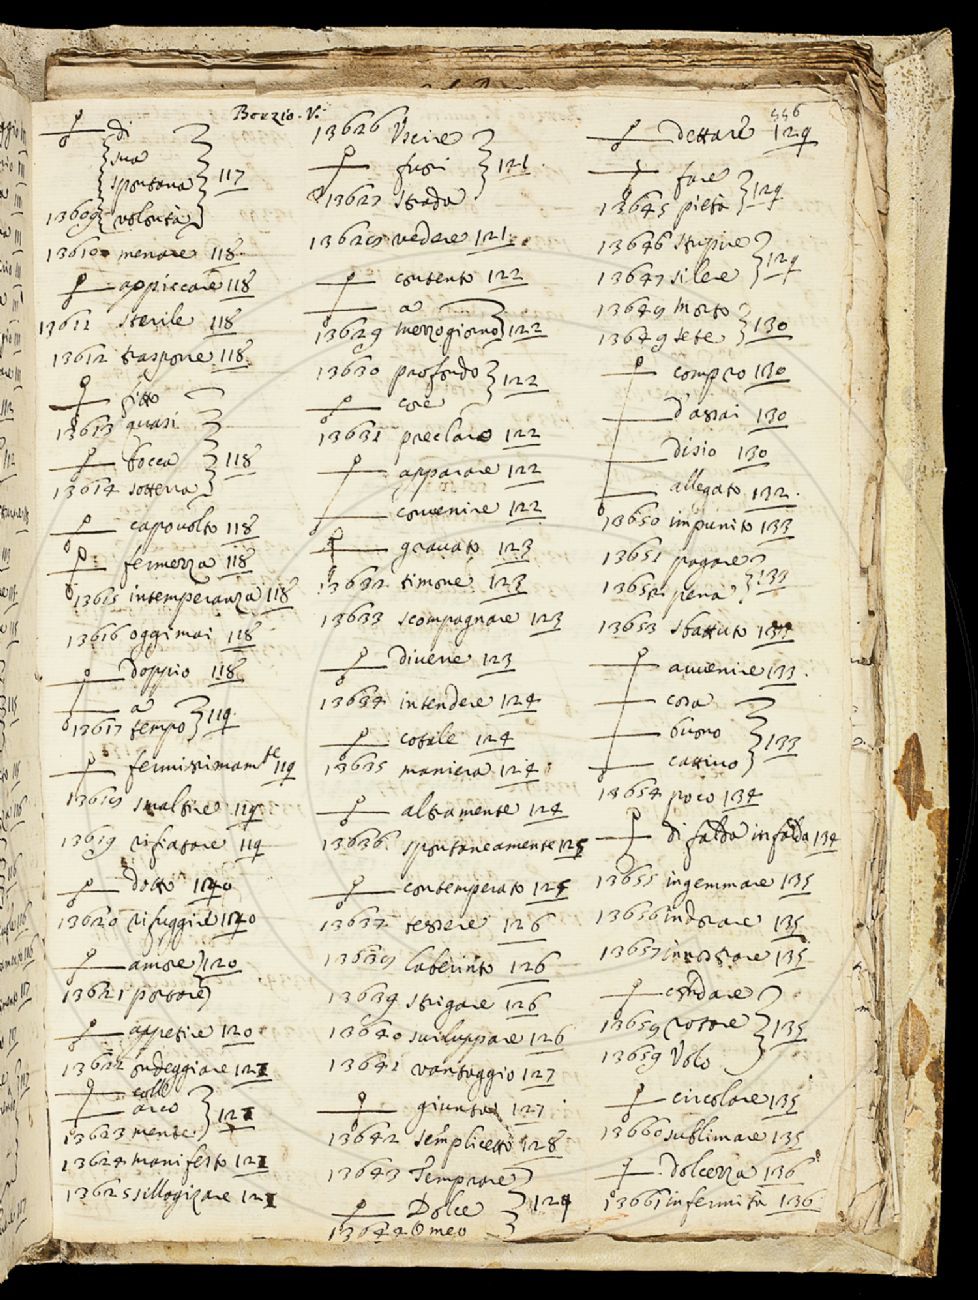 Boezio. V.
556
di
sua
spontana 117
13609 volontà
13610 menare 118
appiccare 118
13611 sterile 118
13612 trasporre 118
fitto
13613 quasi
bocca 118
13614 sotterra
capovolto 118
fermezza 118
13615 intemperanza 118
13616 oggimai 118
doppio 118
a
13617 tempo 119
fermissimamte 119
13618 smaltire 119
13619 rifiatare 119
dotto 120
13620 rifuggire 120
amore 120
13621 portare
appetire 120
13622 ondeggiare 121
colle
arco 121
13623 mente
13624 manifesto 121
13625 sillogizare 121
13626 Uscire
fuori 121
13627 strada
13628 vedere 121
contento 122
a
13629 mezzogiorno 122
13630 profondo
core 122
13631 preclaro 122
apparare 122
convenire 122
gravato 123
13632 timone 123
13633 scompagnare 123
divene 123
13634 intendere 124
cotale 124
13635 maniera 124
altramente 124
13636 spontaneamente 125
contemperato 125
13637 tessere 126
13638 laberinto 126
13639 strigare 126
13640 sviluppare 126
13641 vantaggio 127
giunta 127
13642 semplicetto 128
13643 Temprare
Dolce 129
13644 Omeo
dettare 129
fare
13645 pieta 129
13646 stupire
13647 silere 129
13648 morto
13649 sete 130
compro 130
d'assai 130
disio 130
allegato 132
13650 impunito 133
13651 pagare
13652 pena 133
13653 sbattuto 133
avvenire 133
cosa
buono
cattivo 133
13654 poco 134
di falda in falda 134
13655 ingemmare 135
13656 indorare 135
13657 inostrare 135
andare
13658 rotare 135
13659 Volo
circolare 135
13660 sublimare 135
dolcezza 136
13661 infermità 136